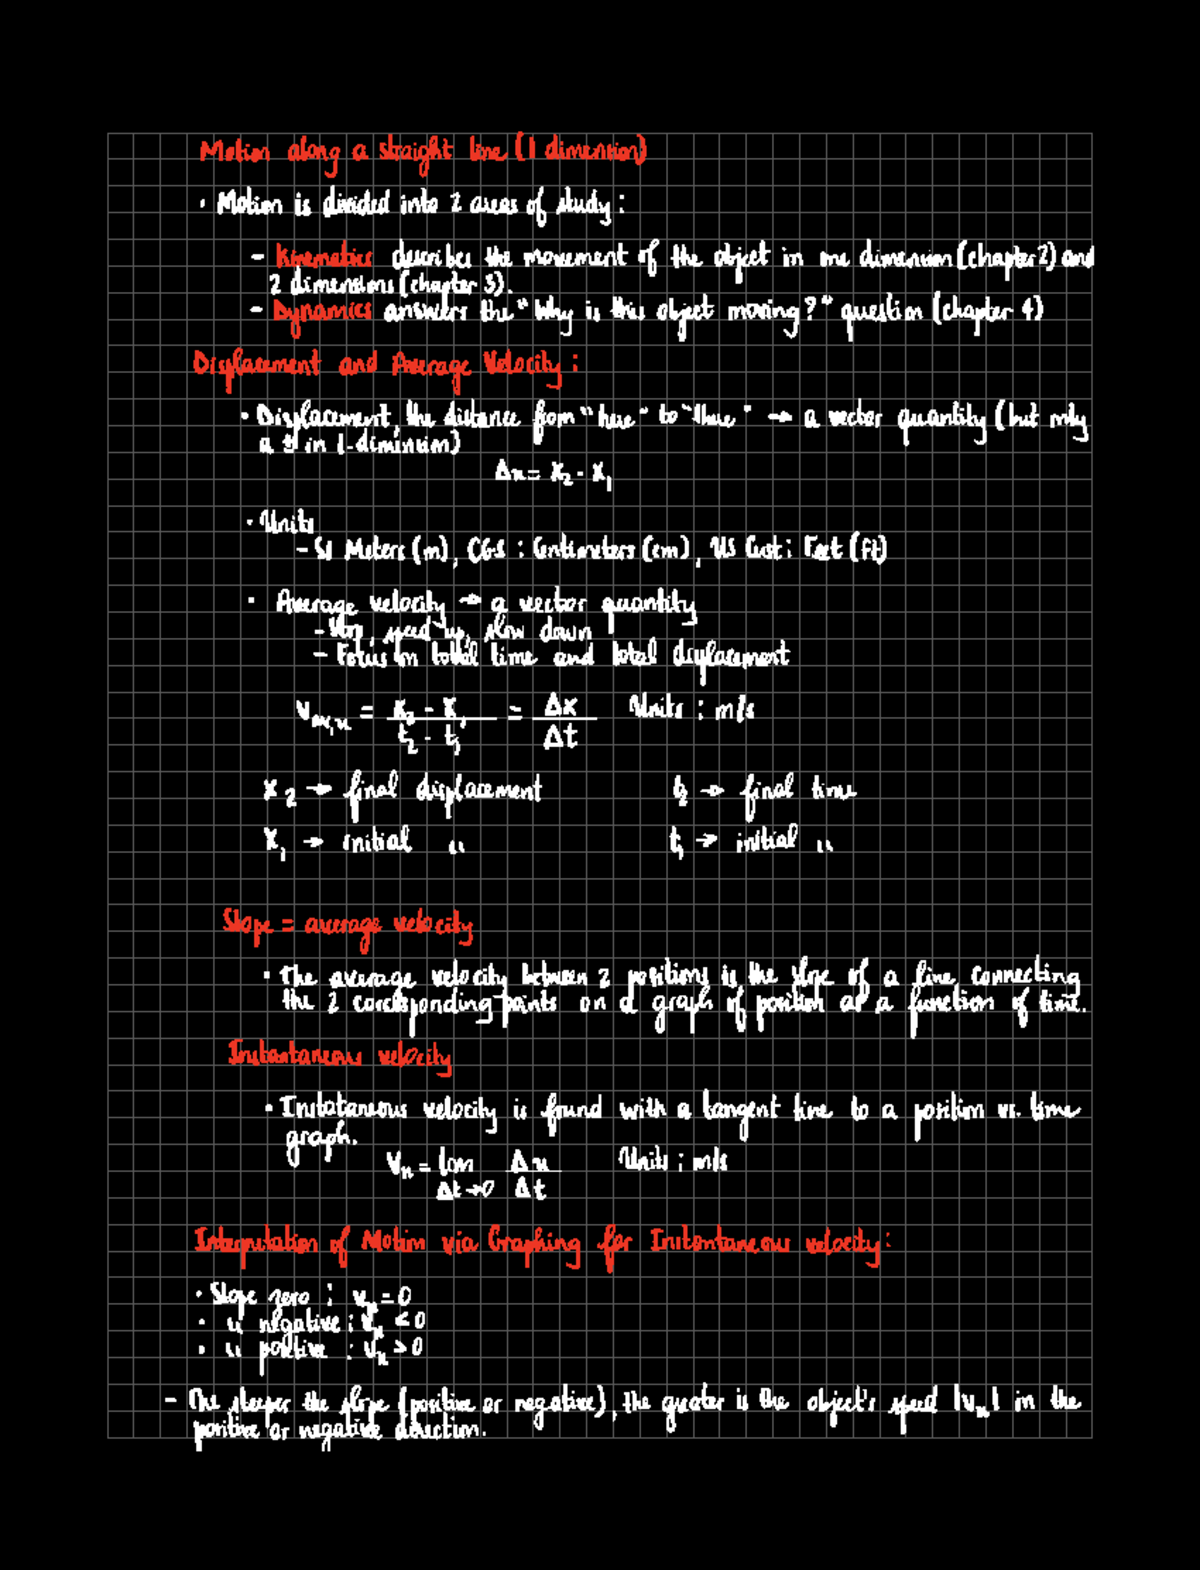 Motion along a straight line (1 dimension)
• Motion is divided into 2 areas of study:
- Kinematics describes the movement of the object in one dimension (chapter 2) and
2 dimensions (chapter 3).
- Dynamics answers the "Why is this object moving?" question (chapter 4)
Displacement and Average Velocity:
• Displacement, the distance from "here" to "there" → a vector quantity (but only
a ± in 1-dimension)
Δx = x₂ - x₁
• Units
- SI Meters (m), CGS: Centimeters (cm), US Cust: Feet (ft)
• Average velocity → a vector quantity
- Stop, speed up, slow down
- Focus on total time and total displacement
v_av,x = (x₂ - x₁)/(t₂ - t₁) = Δx/Δt Units: m/s
x₂ → final displacement t₂ → final time
x₁ → initial " t₁ → initial "
Slope = average velocity
• The average velocity between 2 positions is the slope of a line connecting
the 2 corresponding points on a graph of position as a function of time.
Instantaneous velocity
• Instataneous velocity is found with a tangent line to a position vs. time
graph.
Vx = lim Δt→0 Δx/Δt Units: m/s
Interpretation of Motion via Graphing for Instantaneous velocity:
• Slope zero: vx = 0
• " negative: vx < 0
• " positive: vx > 0
- The steeper the slope (positive or negative), the greater is the object's speed |vx| in the
positive or negative direction.